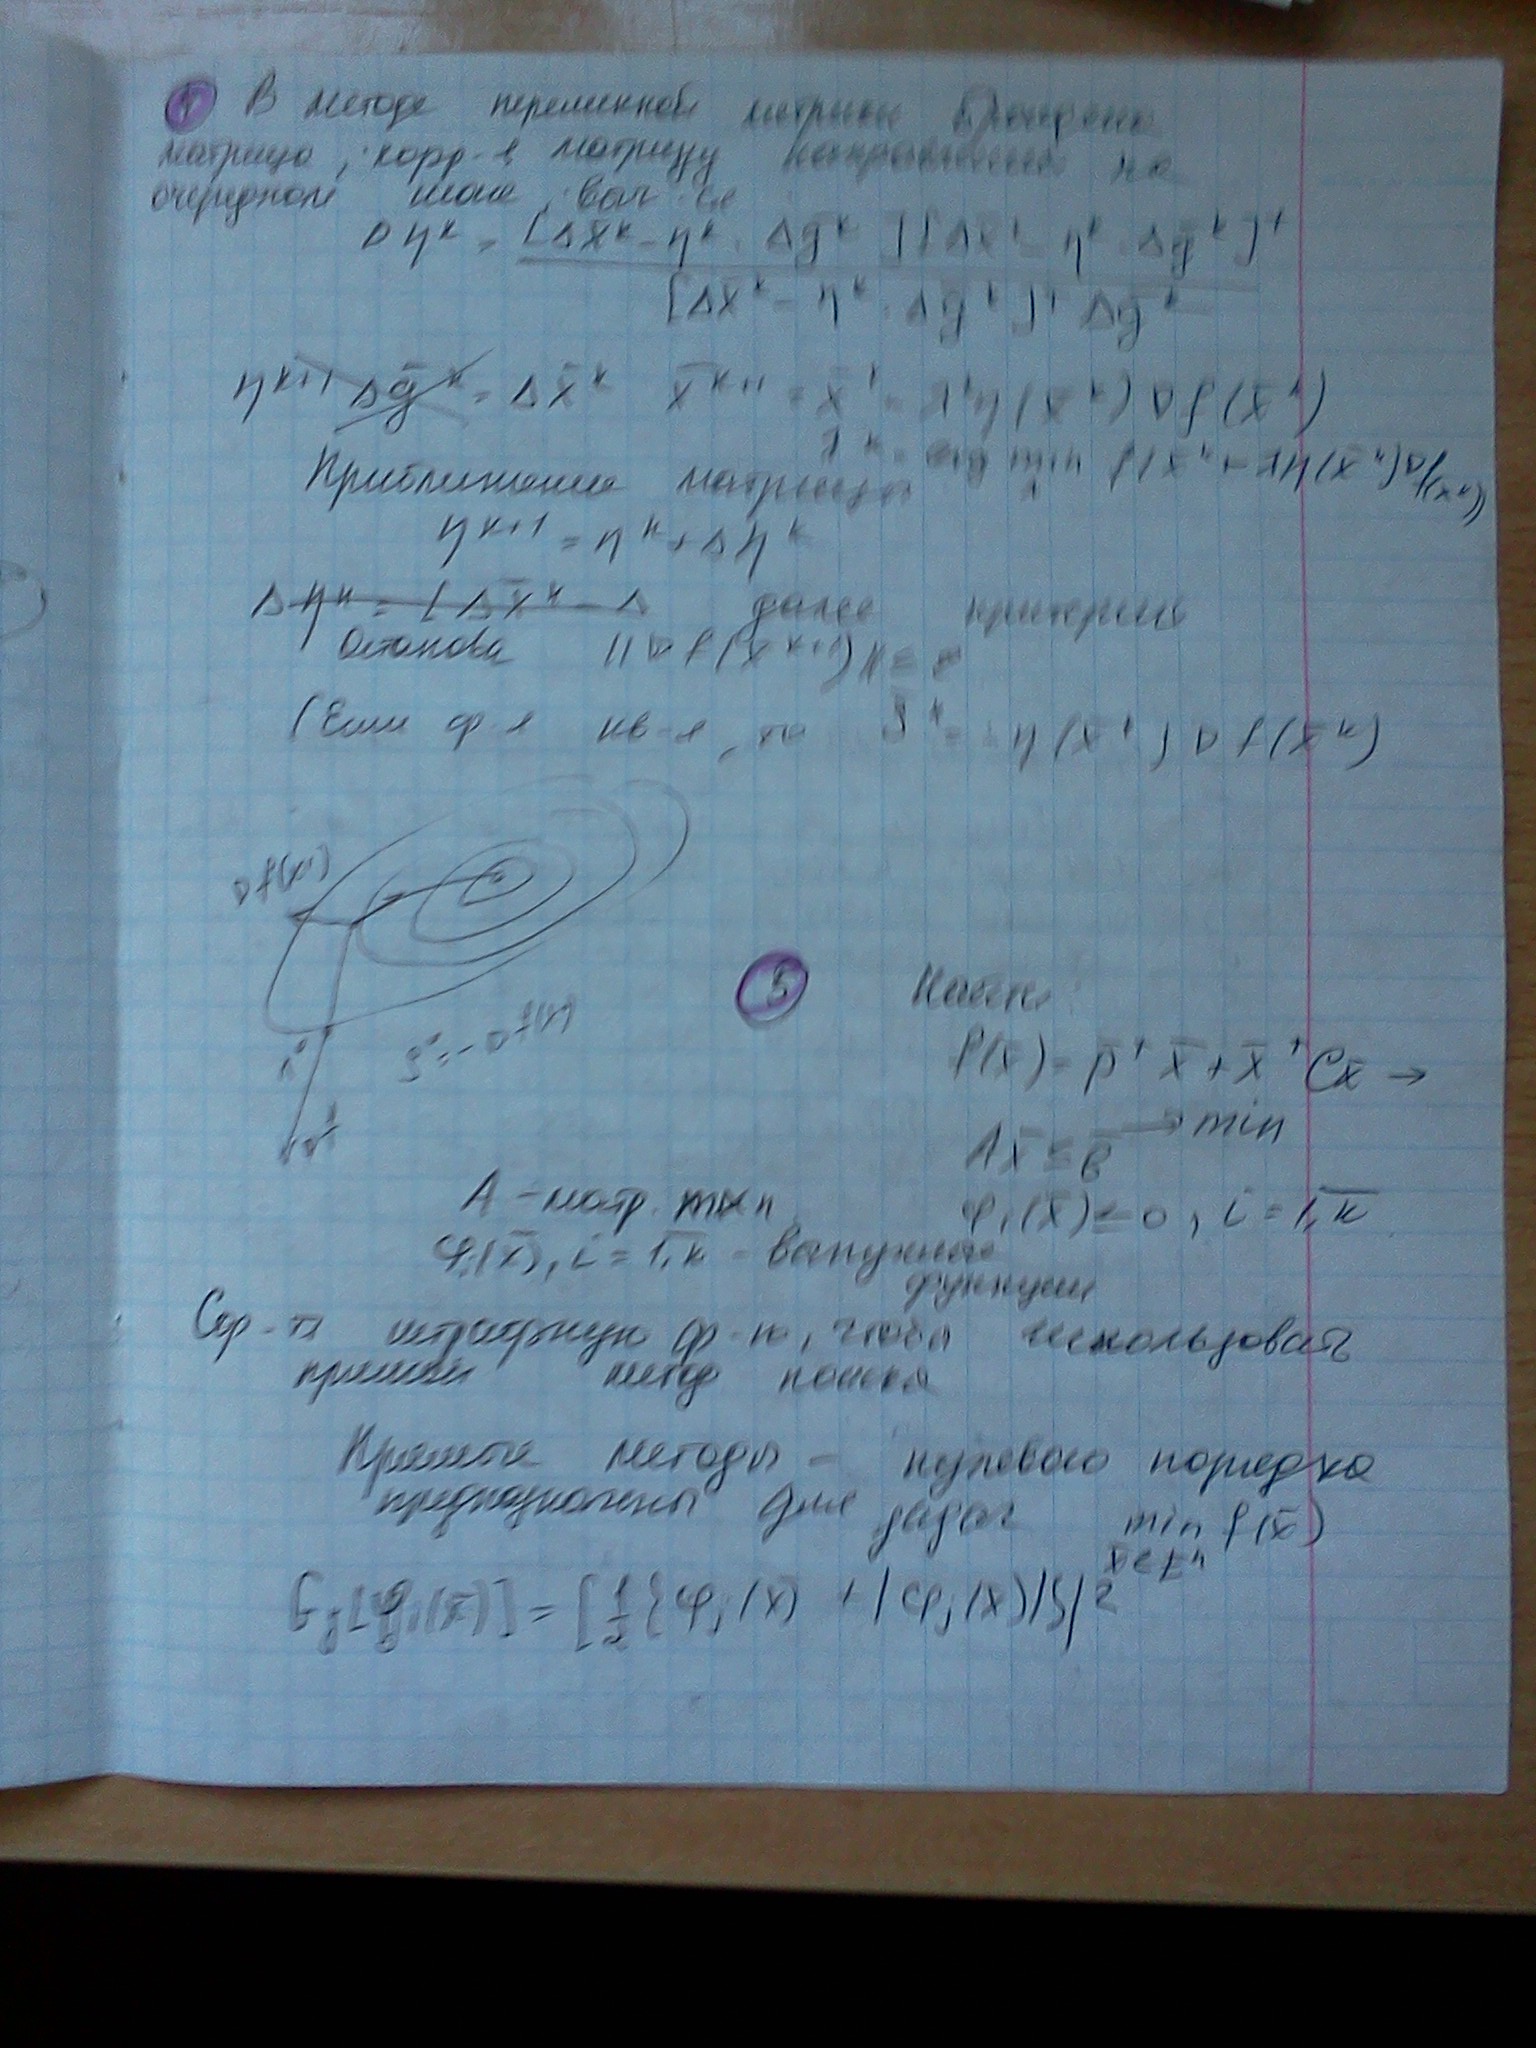 В методе переменной метрики Бройдена
матрица, корр-я матрицу направлений на
очередном шаге, выч-ся
Δη^k = [Δx̄^k - η^k · Δḡ^k][Δx̄^k - η^k · Δḡ^k]^T
[Δx̄^k - η^k · Δḡ^k]^T Δḡ^k
η^{k+1} Δḡ^k = Δx̄^k x̄^{k+1} = x̄^k - λ^k η(x̄^k) ∇f(x̄^k)
λ^k = arg min f(x̄^k - λη(x̄^k)∇f(x^k))
λ
Приближение матрицы
η^{k+1} = η^k + Δη^k
Δη^k = [Δx̄^k - Δ далее критерий
Останова ||∇f(x^{k+1})|| ≤ ε
(Если ф-я кв-я, то S^k = - η(x̄^k) ∇f(x̄^k)
∇f(x¹)
S⁰ = -∇f(x)
x⁰
5
Найти:
f(x̄) = p̄^T x̄ + x̄^T Cx̄ →
→ min
Ax̄ ≤ b̄
A - матр. m×n
φ_i(x̄) ≤ 0, i = 1,k
φ_i(x̄), i = 1,k - выпуклые
функции
Сф-ть штрафную ф-ю, чтобы использовать
прямой метод поиска
Прямые методы - нулевого порядка
предназначены для задач min f(x̄)
x̄∈E^n
G_j[φ_j(x̄)] = [1/2{φ_j(x̄) + |φ_j(x̄)|}]²